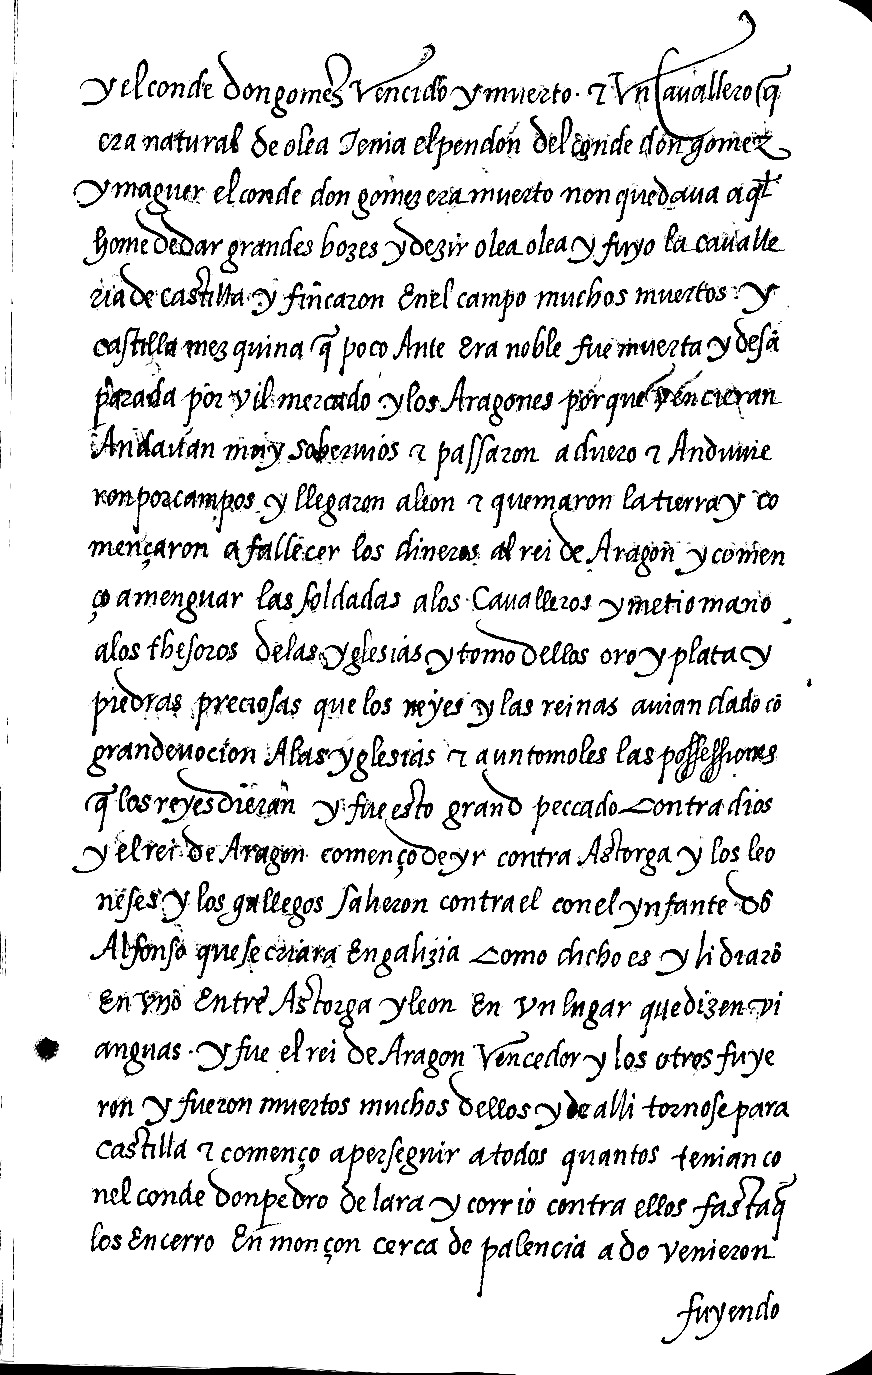 y el conde don gomez Vencido y muerto · τ Vn Cauallero q̃
era natural de olea Tenia el pendon del conde don gomez
y maguer el conde don gomez era muerto non quedaua aq̃l
home de dar grandes bozes y dezir olea olea y fuyo la caualle
ria de castilla y fincaron En el campo muchos muertos · y
castilla mezquina q̃ poco Ante Era noble fue muerta y desã
parada por vil mercado y los Aragones porque vencieran
Andauan muy soberuios τ passaron a duero τ Anduuie
ron por campos y llegaron a leon τ quemaron la tierra y co
mençaron a fallecer los dineros al rei de Aragon y comen
ço a menguar las soldadas a los Caualleros y metio mano
a los thesoros de las yglesias y tomo dellos oro y plata y
piedras preciosas que los reyes y las reinas auian dado cõ
gran deuocion A las yglesias τ aun tomoles las possessiones
q̃ los reyes dieran y fue esto grand peccado Contra dios
y el rei de Aragon començo de yr contra Astorga y los leo
neses y los gallegos salieron contra el con el ynfante dõ
Alfonso que se criara En galizia Como dicho es y lidiarõ
En vno Entre Astorga y leon En vn lugar que dizen vi
anguas · y fue el rei de Aragon Vencedor y los otros fuye
ron y fueron muertos muchos dellos y de alli tornose para
Castilla τ començo a perseguir a todos quantos tenian co
nel conde don pedro de lara y corrio contra ellos fasta q̃
los Encerro En monçon cerca de palencia a do venieron
fuyendo